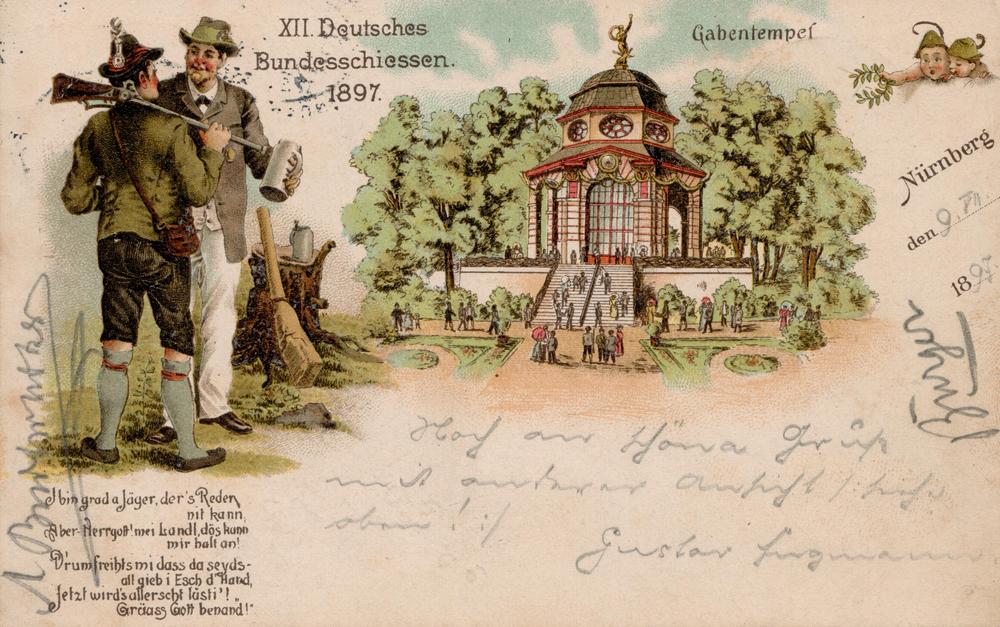 XII. Deutsches
Bundesschiessen.
1897.
Gabentempel
Nürnberg
den 9. VII.
1897
J bin grad a Jäger, der's Reden
nit kann,
Aber Herrgott! mei Landl, dös kunn
mir halt an!
D'rum freihts mi dass da seyds-
all gieb i Esch d'Hand,
Jetzt wird's allerscht lästi'!
Grüass Gott benand!"
Noch an schöne Gruß
mit anderer Ansicht / siehe
oben! :/
Gustav